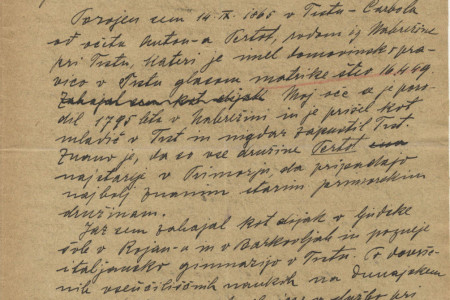 Porojen sem 14. IX. 1865 v Trstu - Čarbola
od očeta Anton-a Pertot, rodom iz Nabrežine
pri Trstu, kateri je imel domovinsko pra-
vico v Trstu glasom matrike štev 16.449.
Zahajal sem kot dijak Moj oče se je poro-
dil 1795 leta v Nabrežini in je prišel kot
mladič v Trst in nigdar zapustil Trst.
Znano je, da so vse družine Pertot
najstarije v Primorju, da pripadajo
najbolj znanim starim primorskim
družinam.
Jaz sem zahajal kot dijak v ljudske
šole v Rojan-u in v Barkovljah in pozneje
italjansko gimnazijo v Trstu. Po dovrše-
nih vseučiliščnih naukih na Dunajskem